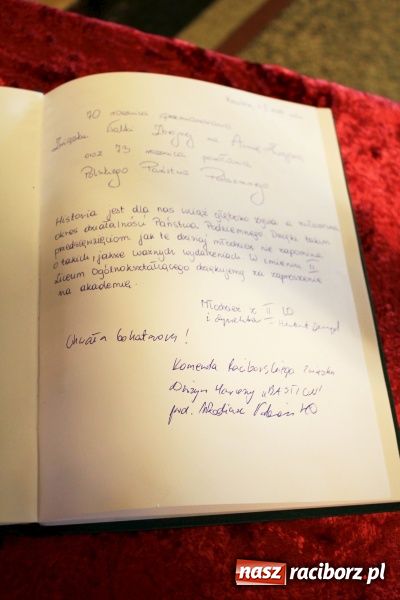 70 rocznica przemianowania
Związku Walki Zbrojnej na Armię Krajową
oraz 73 rocznica powstania
Polskiego Państwa Podziemnego
Historia jest dla nas wciąż głęboko żywa a zwłaszcza
okres działalności Państwa Podziemnego. Dzięki takim
przedsięwzięciom jak te dzisiaj młodzież nie zapomina
o takich, jakże ważnych wydarzeniach. W imieniu II
Liceum Ogólnokształcącego dziękujemy za zaproszenie
na akademię.
Młodzież z II LO
i dyrektor
Chwała bohaterom!
Komenda Raciborskiego Związku
Drużyn Harcerzy „BASTION"
pwd. Arkadiusz HO
nasz raciborz.pl